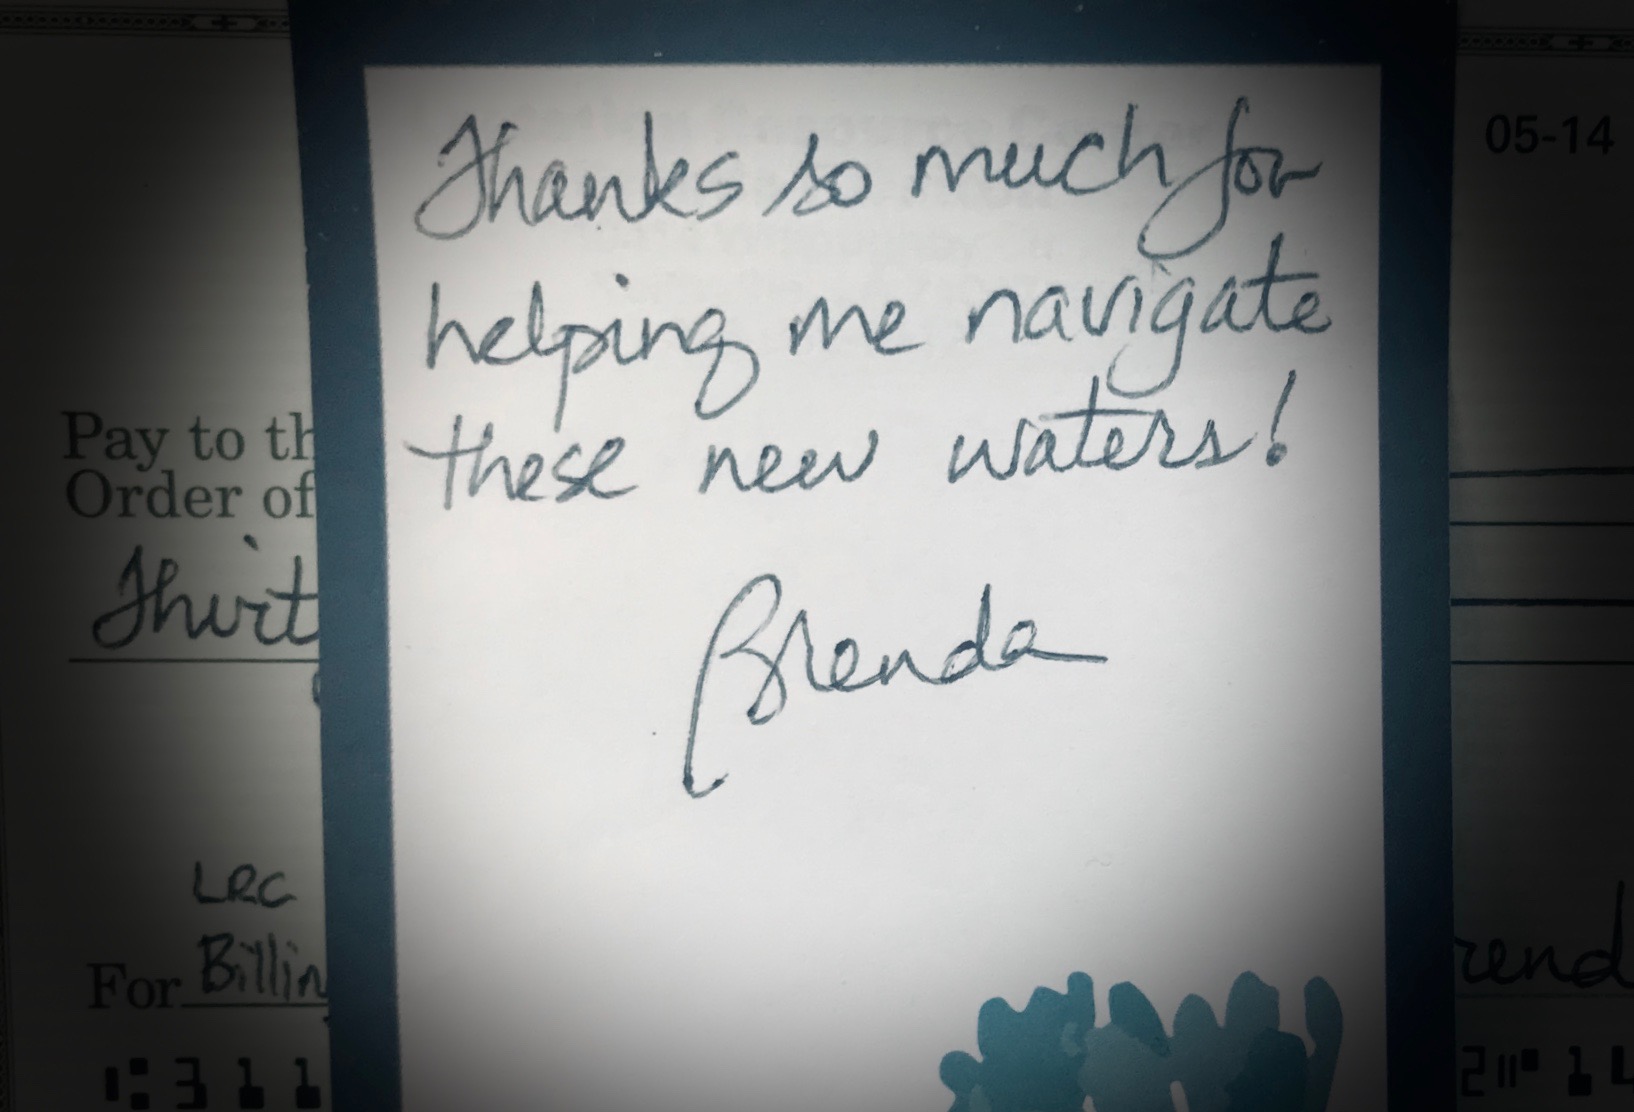 05-14
Thanks so much for
helping me navigate
these new waters!
Brenda
Pay to th
Order of
Thirt
LRC
For Billin
rend
⑆311
2⑈14